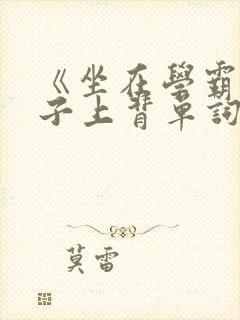 《坐在學霸
子上背單詞
莫雷